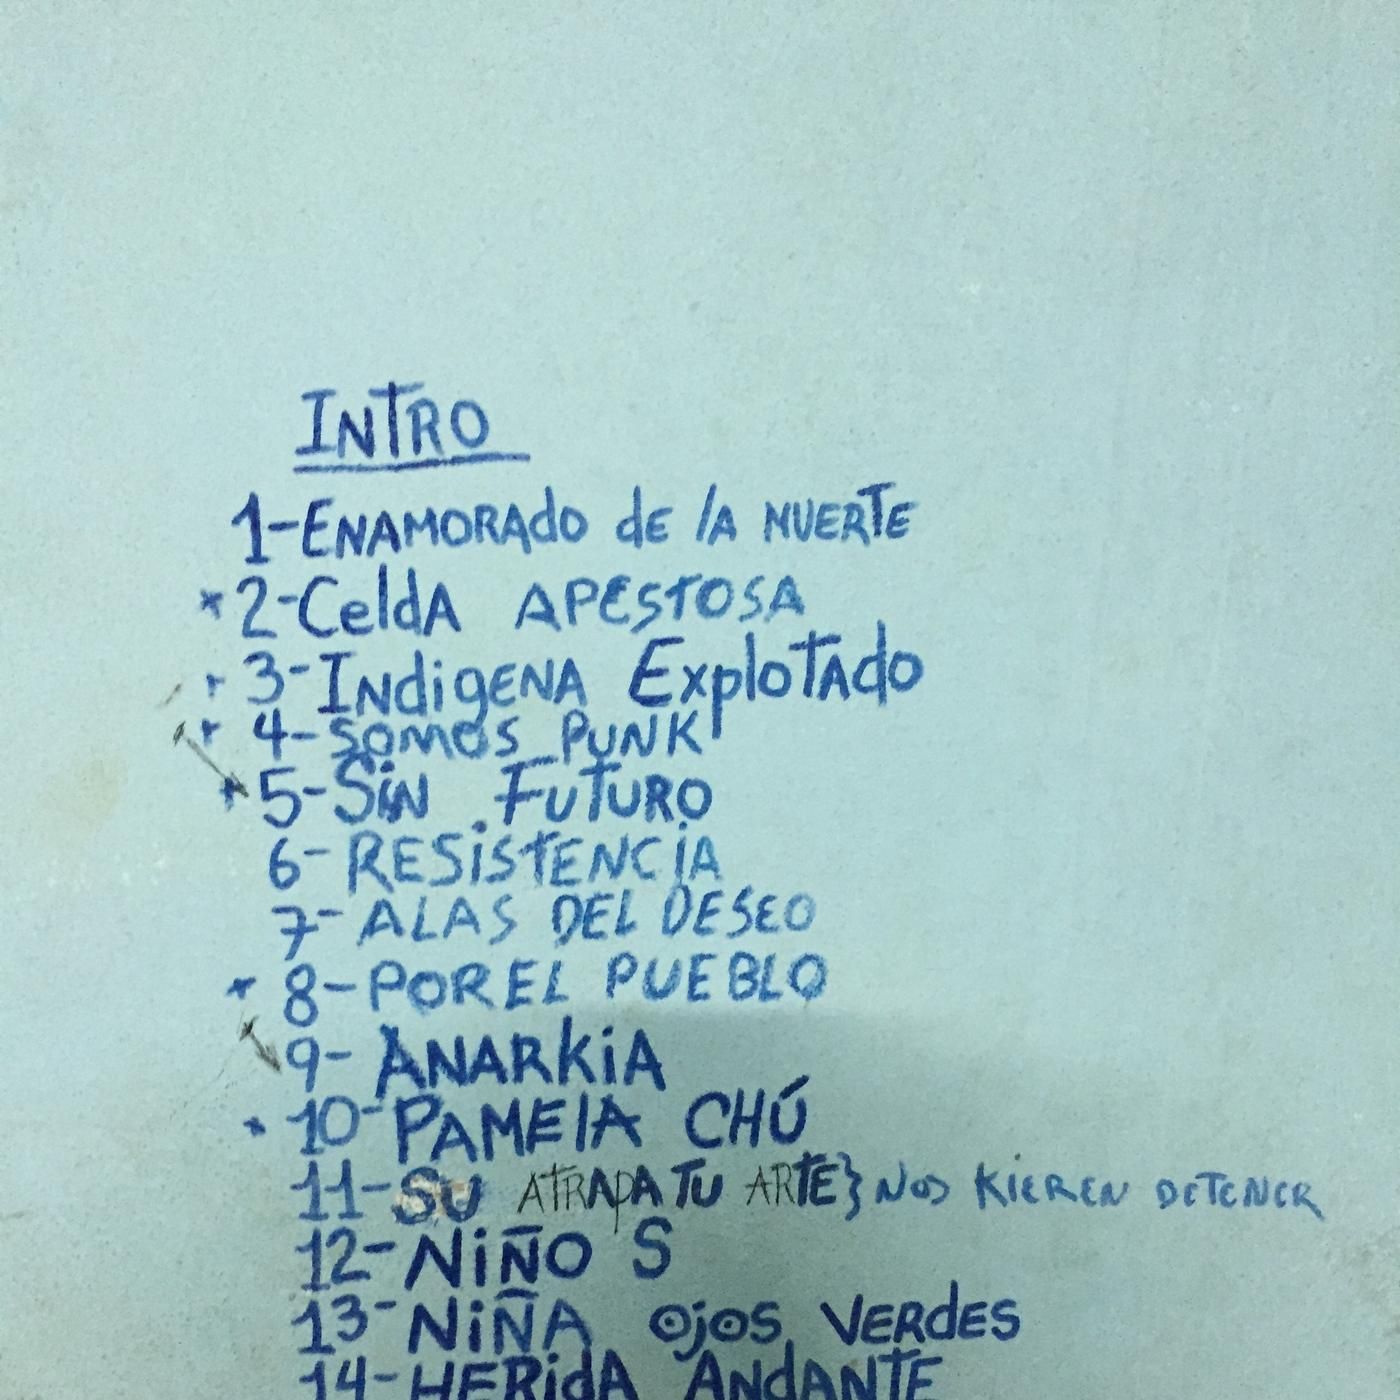 INTRO
1-ENAMORADO de lA MUERTE
*2-CeldA APESTOSA
3-INdigENA ExploTAdo
4-SOMOS PUNK
5-SiN FuTURO
6-RESiSTENCiA
7-ALAS DEL DESEO
8-POREL PUEBLO
9-ANARKiA
10-PAMElA CHÚ
11-SU ATRAPA TU ARTE} NOS KiEREN DETENER
12-NiÑO S
13-NiÑA OjOS VERdES
14-HERidA ANdANTE